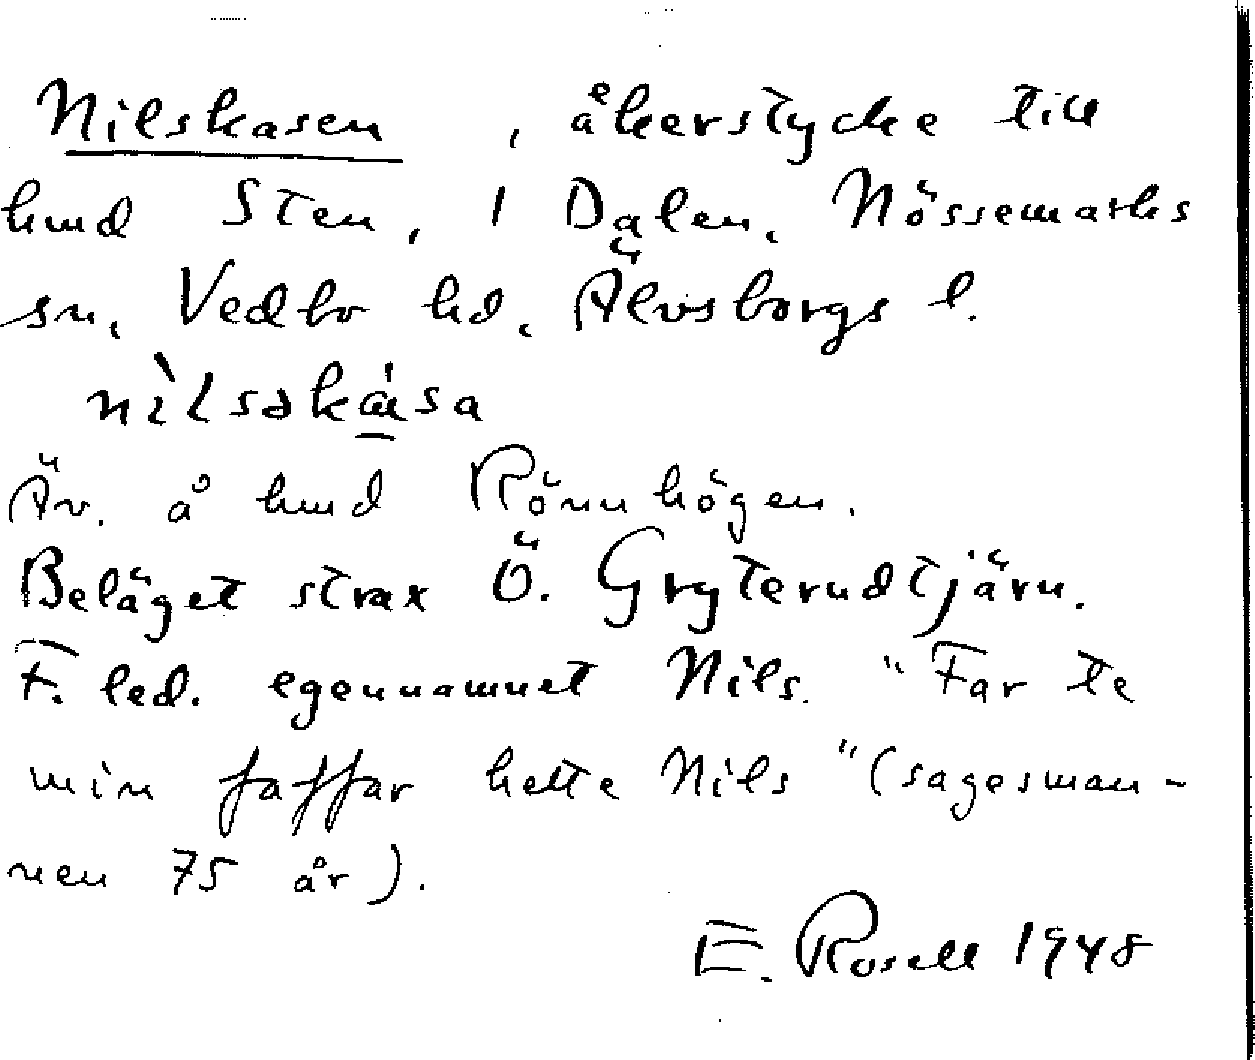 Nilskasen, åkerstycke till
hmd Sten, 1 Dalen, Nössemarks
sn, Vedbo hd, Älvsborgs l.
nìlsəká͟sa
Äv. å hmd Rönnhögen.
Beläget strax Ö. Gryterudtjärn.
F. led. egennamnet Nils. "Far te
min faffar hette Nils" (sagesman-
nen 75 år).
E. Rosell 1948